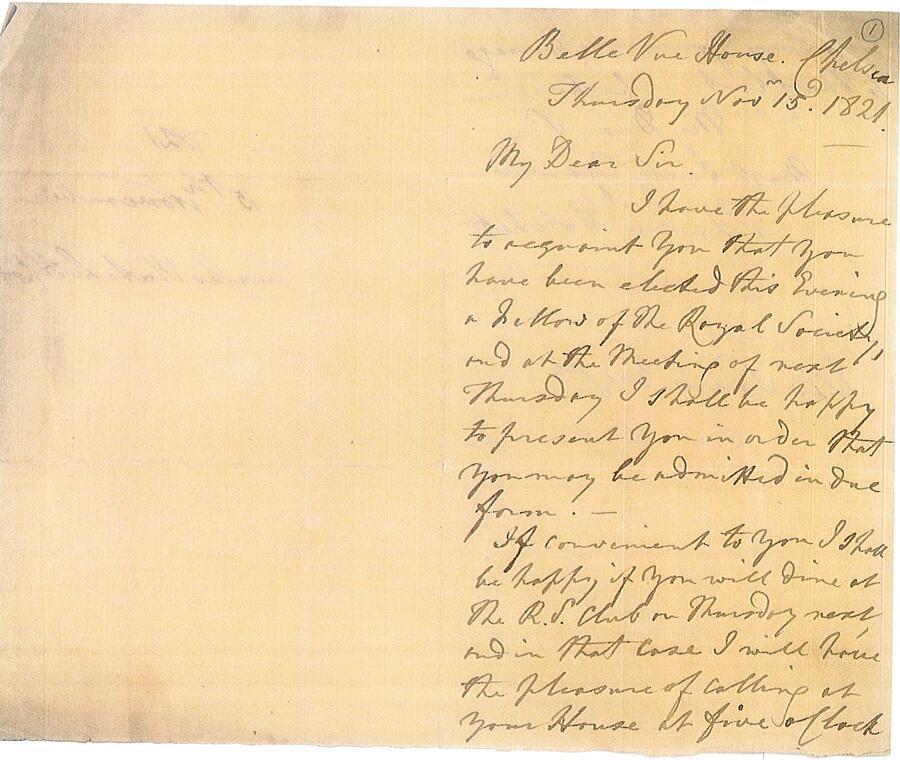 1
Belle Vue House. Chelsea
Thursday Nov 15. 1821.
My Dear Sir
I have the pleasure
to acquaint You that You
have been elected this Evening
a Fellow of the Royal Society,
and at the Meeting of next
Thursday I shall be happy
to present You in order that
you may be admitted in due
form. —
If convenient to You I shall
be happy if You will dine at
the R.S. Club on Thursday next,
and in that case I will have
the pleasure of calling at
your House at five o Clock